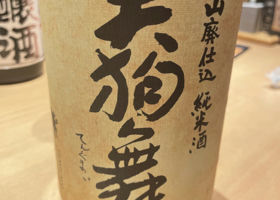 山廃仕込
純米酒
天狗舞
てんぐまい
醸酒